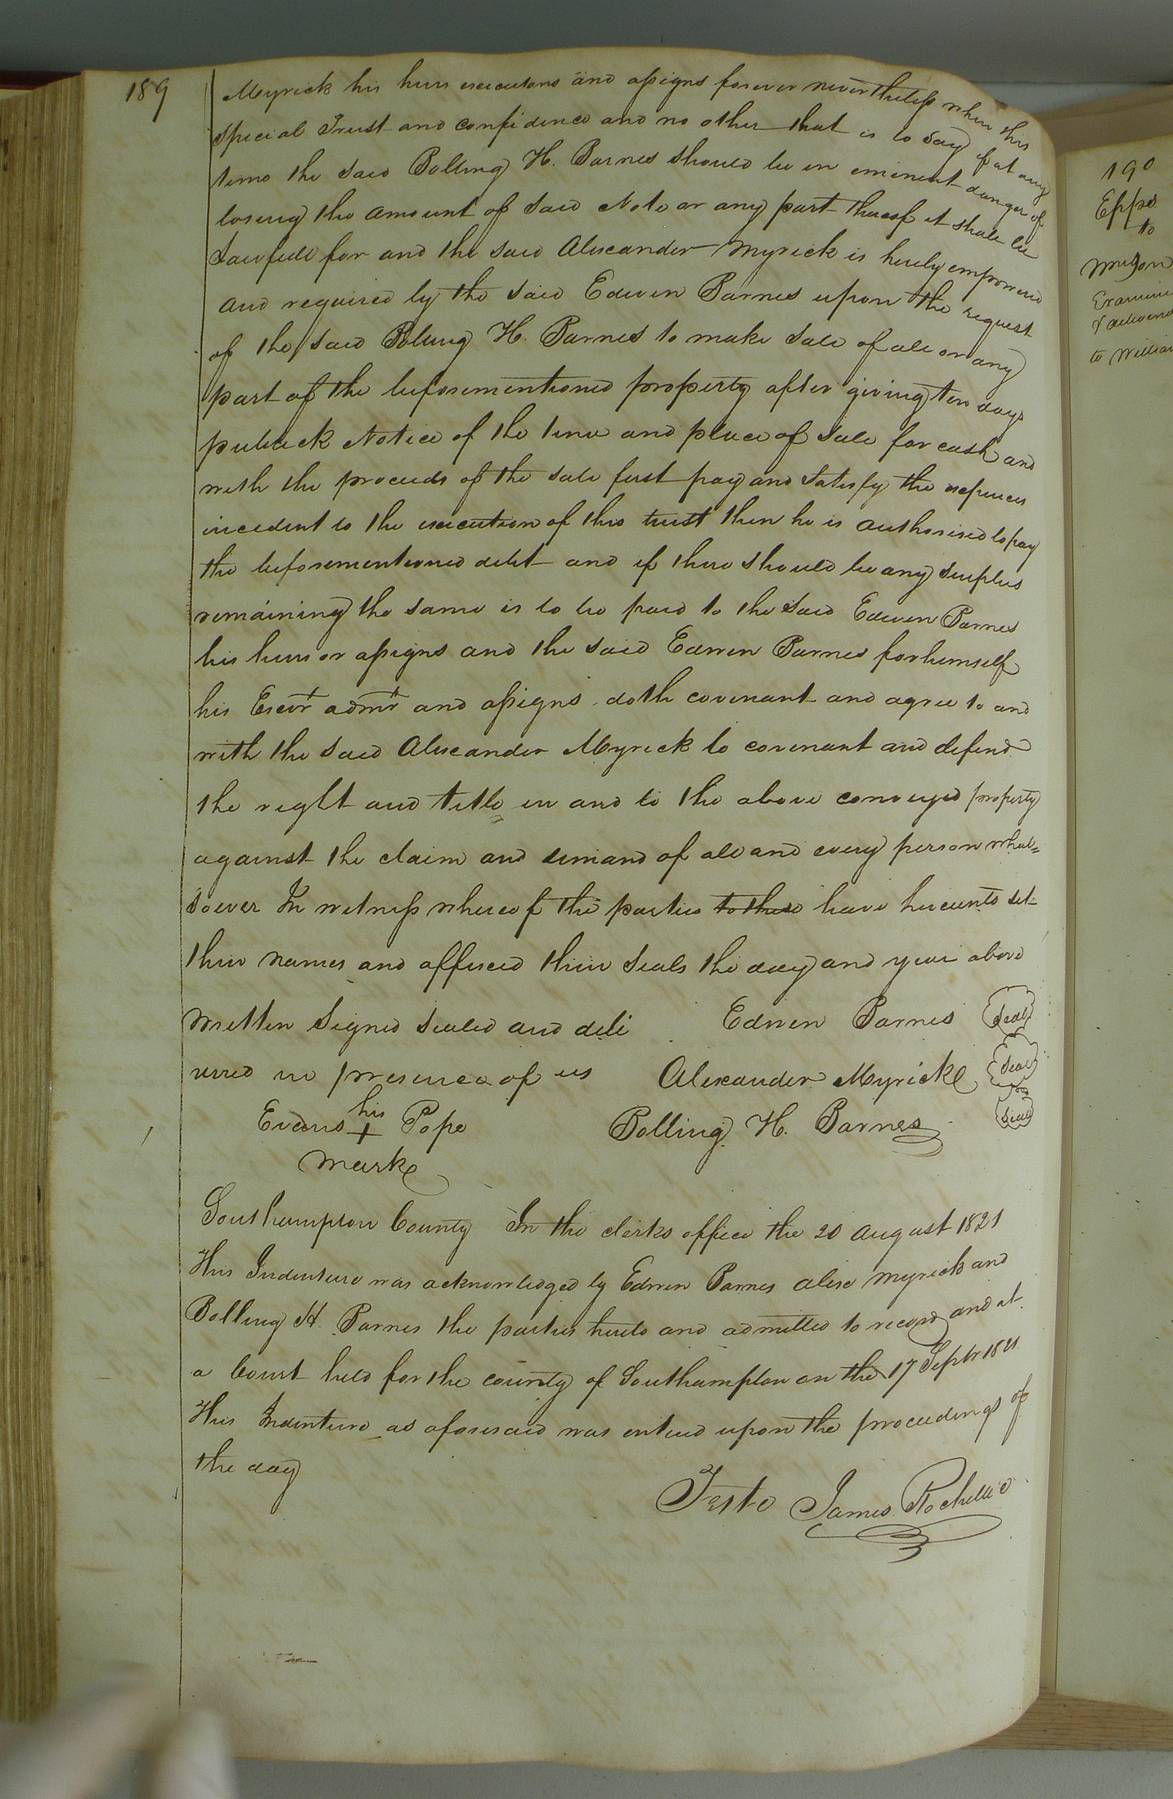 189
Myrick his heirs executors and assigns forever nevertheless upon this
special Trust and confidence and no other that is to say if at any
time the said Bolling H. Barnes should be in eminent danger of
losing the amount of said Note or any part thereof it shall be
Lawfull for and the said Alexander Myrick is hereby empowered
and required by the said Edwin Barnes upon the request
of the said Bolling H. Barnes to make sale of all or any
part of the beforementioned property after giving ten days
publick Notice of the time and place of Sale for cash and
with the proceeds of the sale first pay and satisfy the expences
incident to the execution of this trust then he is authorised to pay
the beforementioned debt and if there should be any surplus
remaining the same is to be paid to the said Edwin Barnes
his heirs or assigns and the said Edwin Barnes for himself
his Exors admrs and assigns doth covenant and agree to and
with the said Alexander Myrick to covenant and defend
the right and title in and to the above conveyed property
against the claim and demand of all and every person what=
soever In witness whereof the parties to these have hereunto set
their names and affixed their seals the day and year above
written Signed sealed and deli Edwin Barnes Seal
vered in presence of us Alexander Myrick Seal
Evans his + Pope Bolling H. Barnes Seal
mark
Southampton County In the clerks office the 20 August 1821
This Indenture was acknowledged by Edwin Barnes Alexr Myrick and
Bolling H. Barnes the parties hereto and admitted to record and at
a Court held for the county of Southampton on the 17 Septr 1821
This Indenture as aforesaid was entered upon the proceedings of
the day
Teste James Rochelle
190
Epps
to
Examined
& delivered
to William